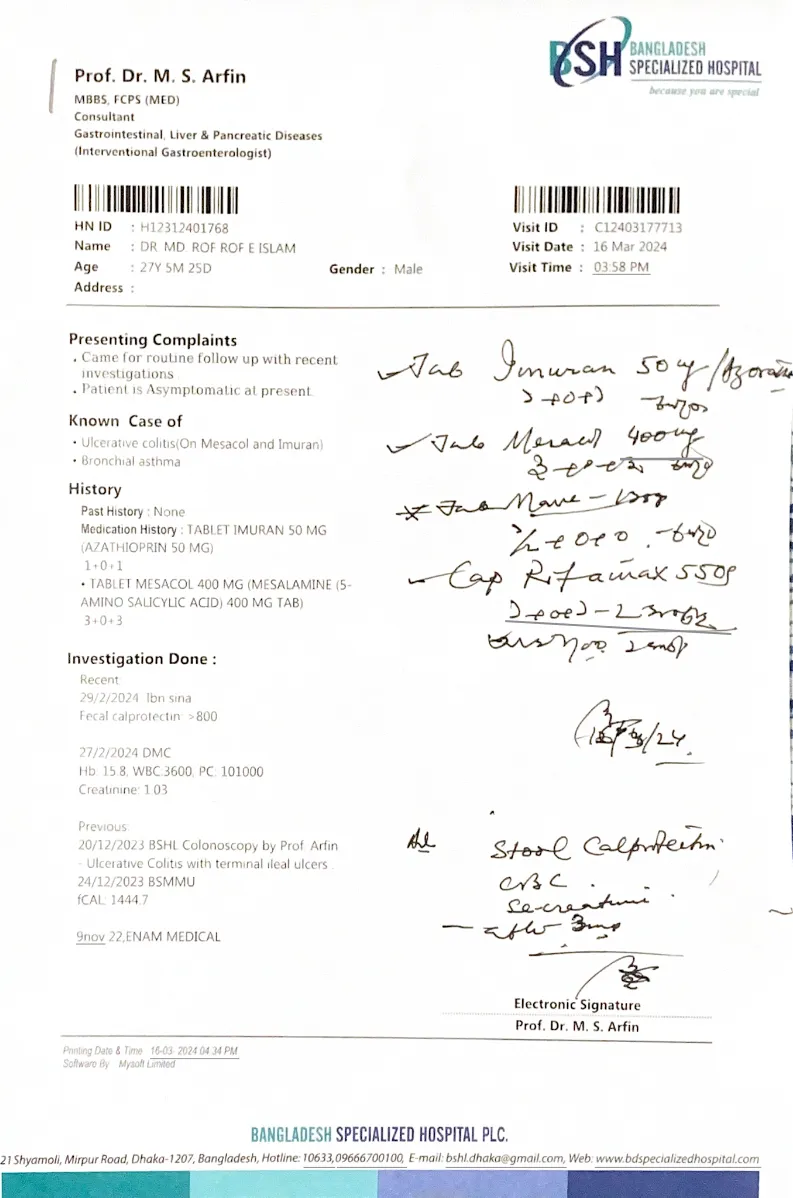 BSH BANGLADESH
SPECIALIZED HOSPITAL
because you are special
Prof. Dr. M. S. Arfin
MBBS, FCPS (MED)
Consultant
Gastrointestinal, Liver & Pancreatic Diseases
(Interventional Gastroenterologist)
HN ID : H12312401768
Name : DR MD ROF ROF E ISLAM
Age : 27Y 5M 25D
Gender : Male
Address :
Visit ID : C12403177713
Visit Date : 16 Mar 2024
Visit Time : 03:58 PM
Presenting Complaints
. Came for routine follow up with recent
investigations
. Patient is Asymptomatic at present.
Known Case of
• Ulcerative colitis(On Mesacol and Imuran)
• Bronchial asthma
History
Past History : None
Medication History : TABLET IMURAN 50 MG
(AZATHIOPRIN 50 MG)
1+0+1
• TABLET MESACOL 400 MG (MESALAMINE (5-
AMINO SALICYLIC ACID) 400 MG TAB)
3+0+3
Investigation Done :
Recent:
29/2/2024 Ibn sina
Fecal calprotectin: >800
27/2/2024 DMC
Hb: 15.8, WBC:3600, PC: 101000
Creatinine: 1.03
Previous:
20/12/2023 BSHL Colonoscopy by Prof. Arfin
- Ulcerative Colitis with terminal ileal ulcers
24/12/2023 BSMMU
fCAL: 1444.7
9nov 22,ENAM MEDICAL
Tab Imuran 50 mg /
১+০+১
Tab Mesacol 400mg
Tab
Cap Rifamax 550
১+০+১
Stool Calprotectin
CBC
Se-creatinine
Electronic Signature
Prof. Dr. M. S. Arfin
Printing Date & Time 16-03-2024 04:34 PM
Software By Mysoft Limited
BANGLADESH SPECIALIZED HOSPITAL PLC.
21 Shyamoli, Mirpur Road, Dhaka-1207, Bangladesh, Hotline: 10633,09666700100, E-mail: bshl.dhaka@gmail.com, Web: www.bdspecializedhospital.com